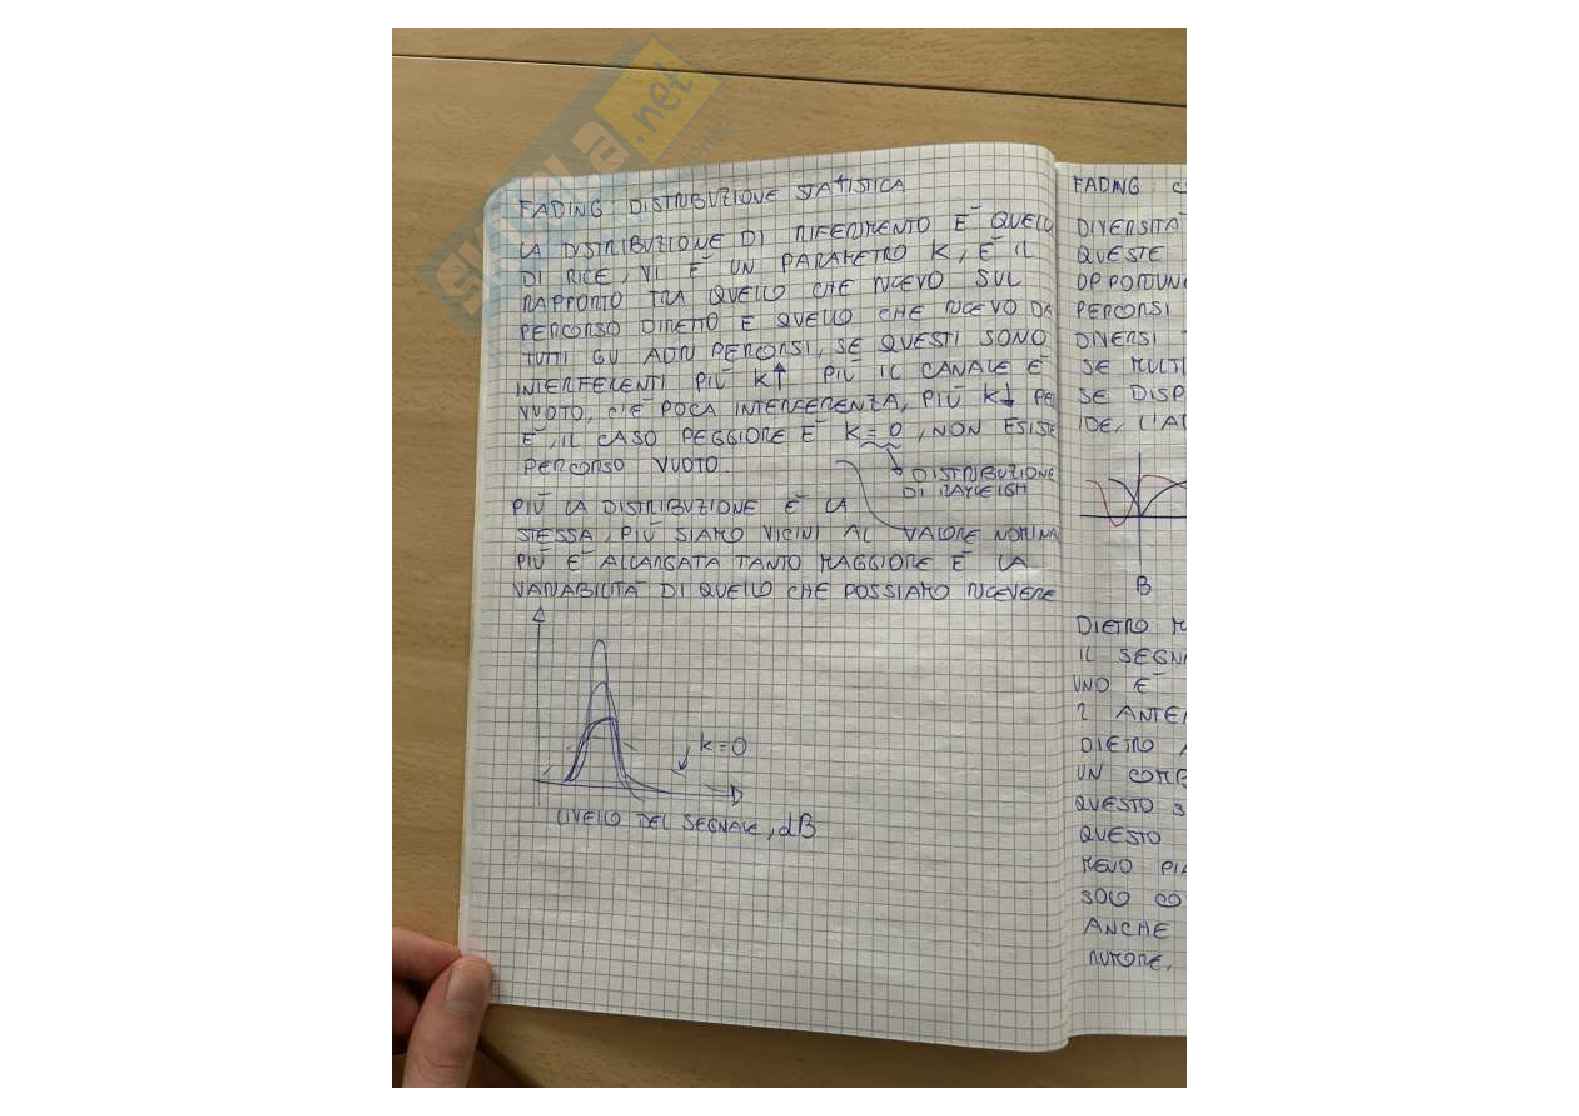 SKUOLA.net
FADING: DISTRIBUZIONE STATISTICA
LA DISTRIBUZIONE DI RIFERIMENTO È QUELLA
DI RICE, VI È UN PARAMETRO K, È IL
RAPPORTO TRA QUELLO CHE RICEVO SUL
PERCORSO DIRETTO E QUELLO CHE RICEVO DA
TUTTI GLI ALTRI PERCORSI, SE QUESTI SONO
INTERFERENTI PIÙ K↑ PIÙ IL CANALE È
VUOTO, C'È POCA INTERFERENZA, PIÙ K↓ PE
È, IL CASO PEGGIORE È K=0, NON ESISTE
PERCORSO VUOTO.
DISTRIBUZIONE
DI RAYLEIGH
PIÙ LA DISTRIBUZIONE È LA
STESSA, PIÙ SIAMO VICINI AL VALORE NOMINA
PIÙ È ALLARGATA TANTO MAGGIORE È LA
VARIABILITÀ DI QUELLO CHE POSSIAMO RICEVERE
K=0
LIVELLO DEL SEGNALE, dB
FADING
DIVERSITÀ
QUESTE
OPPORTUN
PERCORSI
DIVERSI
SE MULTI
SE DISP
IDE, L'A
B
DIETRO
IL SEGN
UNO È
2 ANTE
DIETRO A
UN COMB
QUESTO
QUESTO
MENO PI
SOLO CO
ANCHE